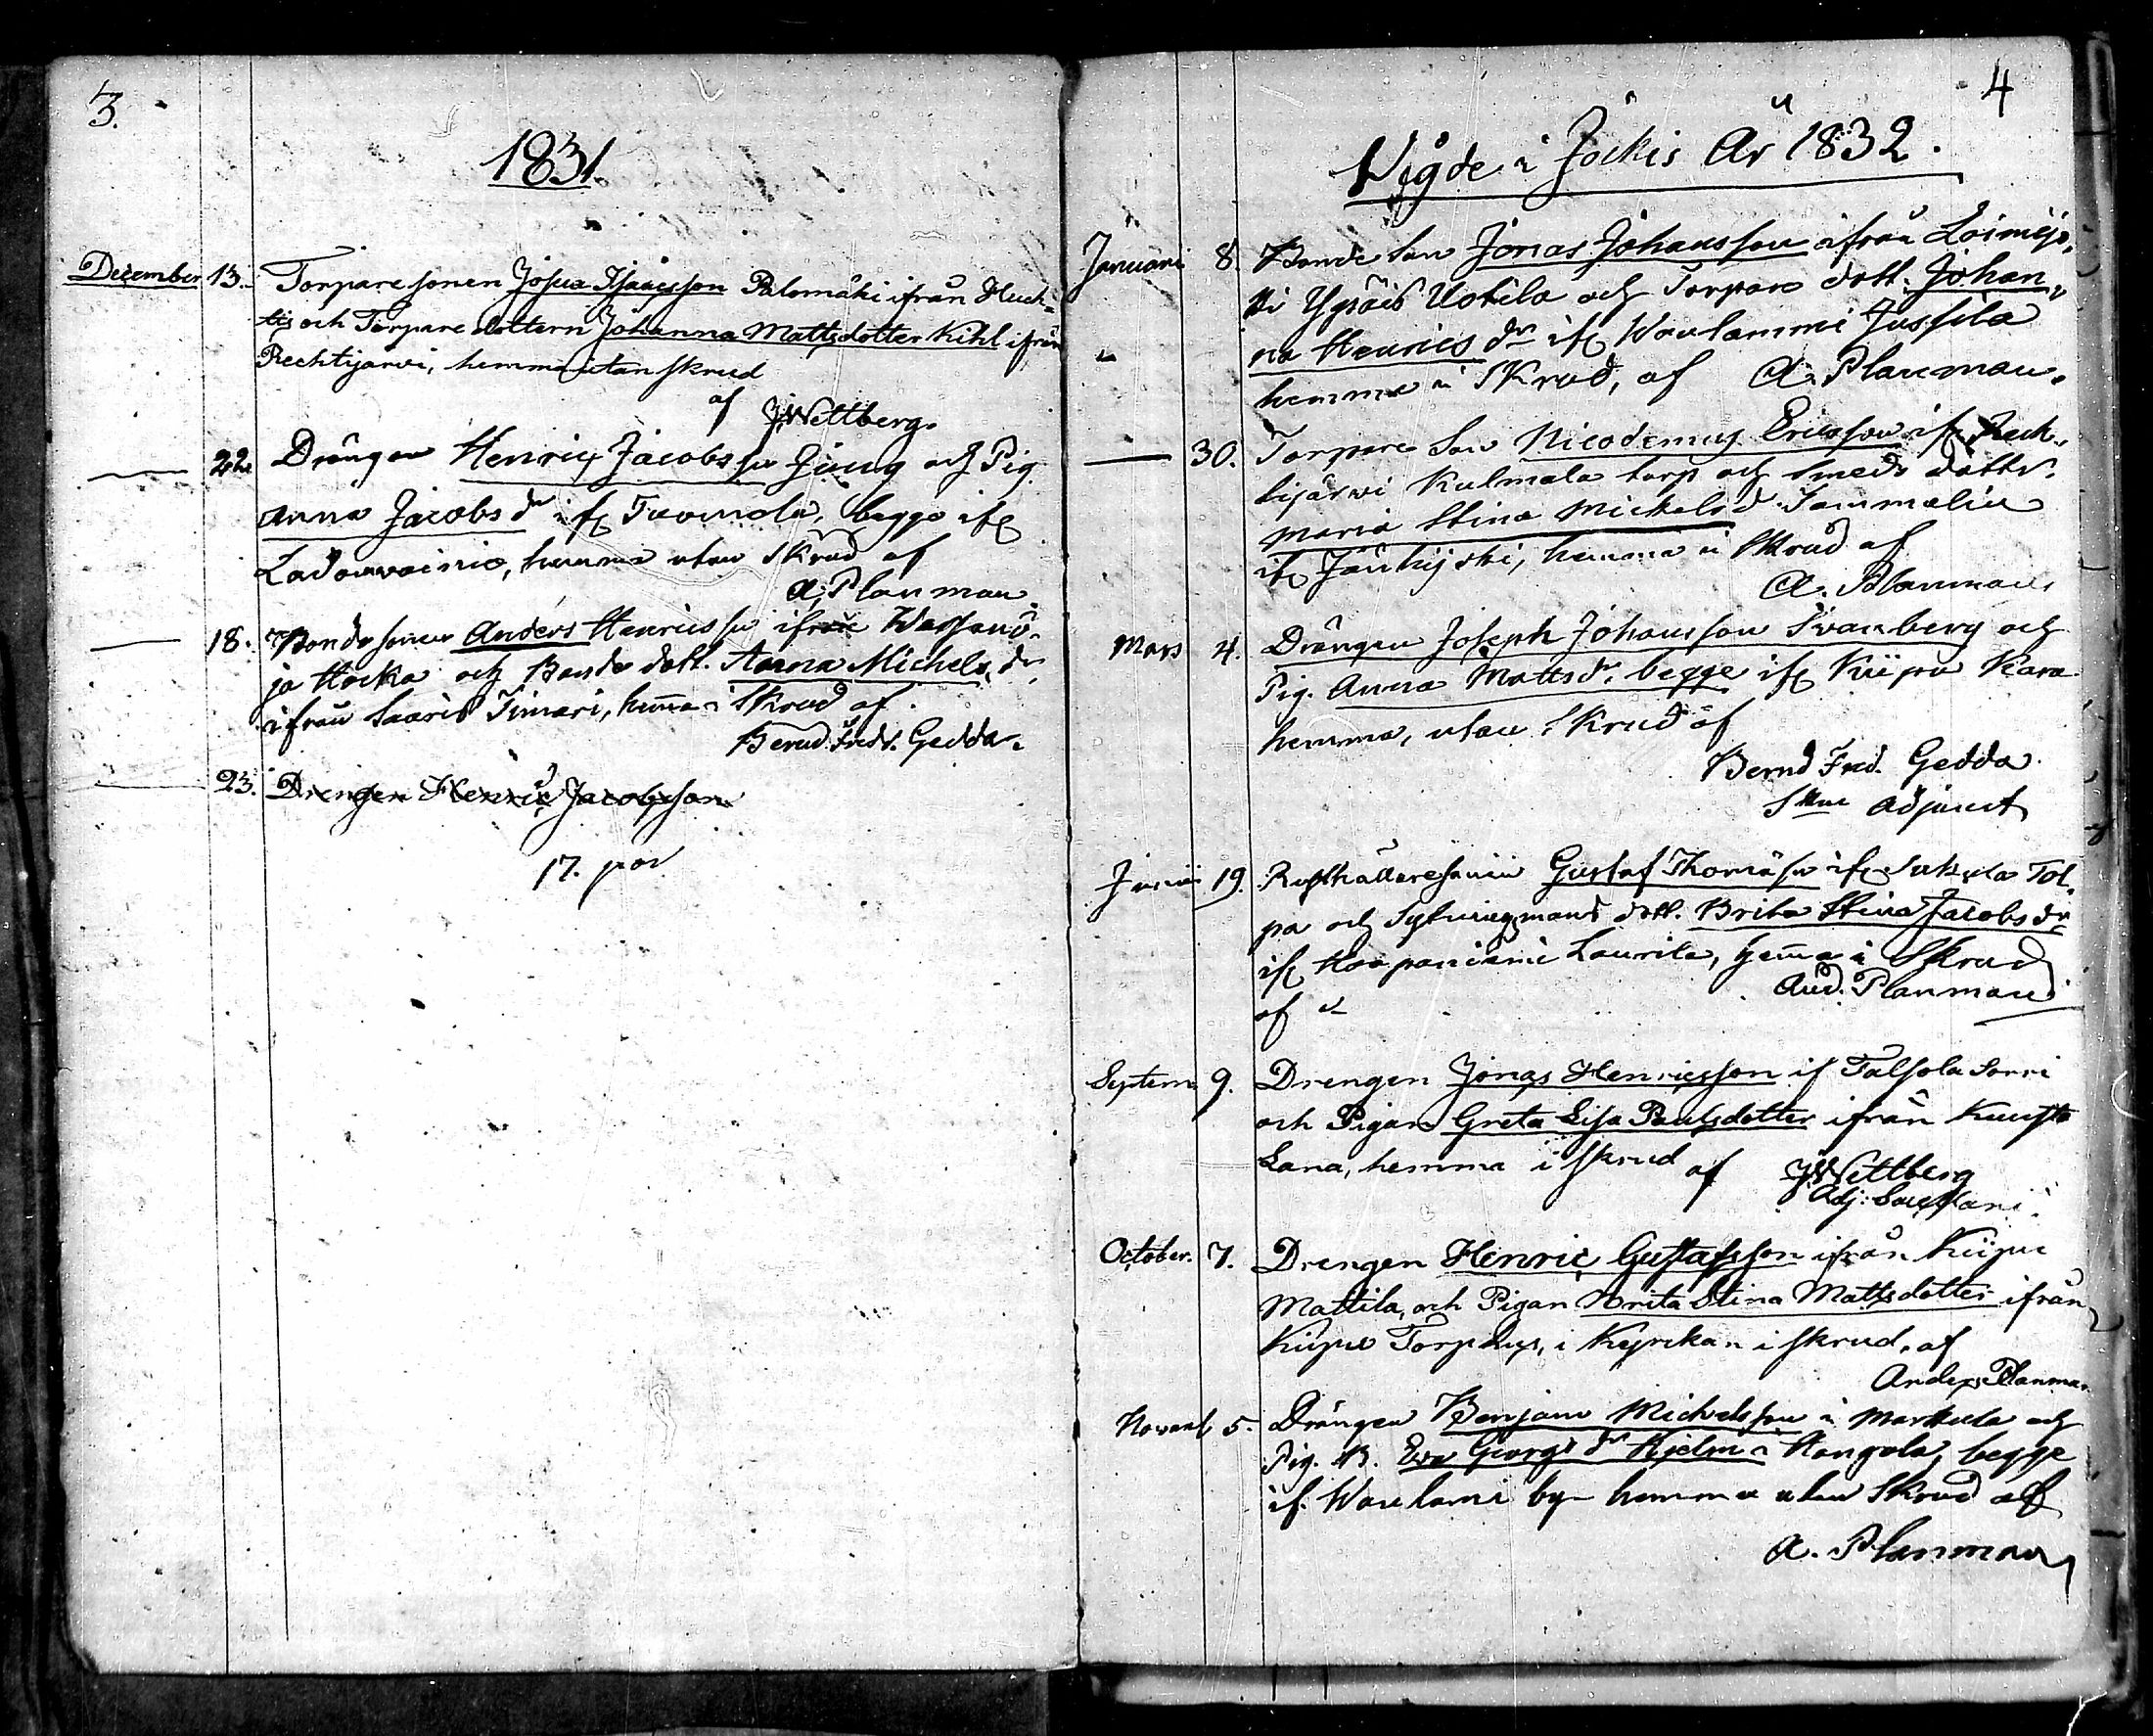 3.
1831.
December 13. Torparesonen Josua Isaacsson Palomäki ifrån Huch-
tis och Torpare dottern Johanna Mattsdotter Kihl ifrån
Rechtijarvi, hemma utan skrud
af JWettberg.
22. Drängen Henric Jacobsson Jung och Pig.
Anna Jacobs dr ifr begge ifr
Ladonvainio, hemma utan Skrud af
A. Planman
18. Bondesonen Anders Henricsson ifrån
ja Hocka och Bonde dott. Anna Michels dr
ifrån Saaris Timari, hemma i Skrud af
Bernd. Fredr. Gedda.
23. Drengen Henric Jacobsson
17. par
4
Vigde i Jockis År 1832.
Januari 8. Bonde Son Jonas Johansson ifrån Loimijo-
ki Ypäis Uotila och Torpare dott. Johan-
na Henrics dr ifr Waulammi Jussila
hemma i Skrud, af A. Planman.
30. Torpare Son Nicodemus Ericsson ifr Rech-
tijärvi Kulmala torp och Smeds dottr.
Maria Stina Mickels d. Tammelin
ifr hemma i Skrud af
A. Planman.
Mars 4. Drängen Joseph Johansson Svanberg och
Pig. Anna Matts dr, begge ifr Kiipu Kara
hemma, utan Skrud af
Bernd Fred. Gedda
Adjunct
Junii 19. Rusthållaresonen Gustaf Thomasson ifr Sukula Tol-
pa och dott. Brita Stina Jacobs dr
ifr Haapaniemi Laurila, hemma i Skrud
af And. Planman
Septem 9. Drengen Jonas Henricsson if Talsola Sorri
och Pigan Greta Lisa Paulsdotter ifrån
Lana, hemma i skrud af JWettberg
Adj:
October. 7. Drengen Henric Gustafsson ifrån Kiipu
Mattila, och Pigan Brita Stina Mattsdotter ifrån
Kiipu Torp i Kyrkan i skrud, af
Anders Planman
Novemb 5. Drängen Benjam Michelsson i Markula och
Pig. B. Eva Georgs dr Hjelm i Hangola, begge
if. Waulami by hemma utan Skrud af
A. Planman